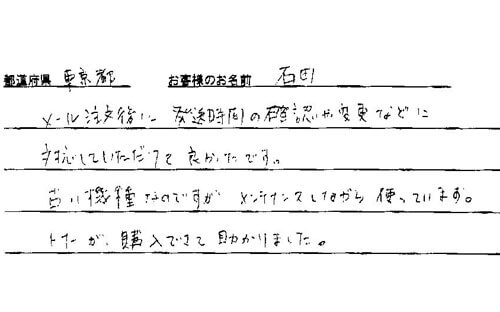 都道府県 東京都 お客様のお名前 石田
メール注文後に 発送時間の確認や変更などに
対応していただけて良かったです。
古い機種なのですが メンテナンスしながら使っています。
トナーが、購入できて助かりました。